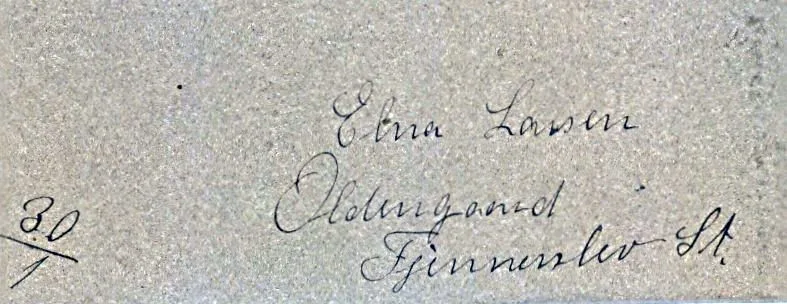 Elna Larsen
Oldengaard
Fjenneslev St.
30/1